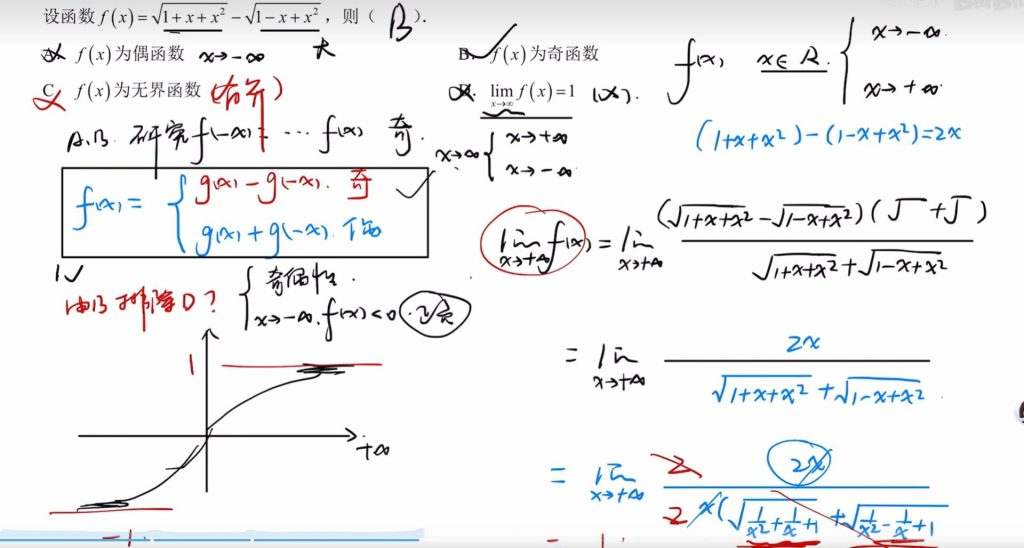 设函数 f(x)=√(1+x+x²)-√(1-x+x²)，则（ B ）.
A. f(x)为偶函数 x→-∞ 大
B. f(x)为奇函数
C. f(x)为无界函数 (有界)
D. lim x→∞ f(x)=1 (×).
f(x), x∈R. { x→-∞ x→+∞
A.B. 研究f(-x)= … f(x) 奇.
x→∞ { x→+∞ x→-∞
(1+x+x²)-(1-x+x²)=2x
f(x)= { g(x)-g(-x). 奇
g(x)+g(-x). 偶
lim x→+∞ f(x) = lim x→+∞ (√(1+x+x²)-√(1-x+x²))(√+√) / √(1+x+x²)+√(1-x+x²)
1✓
由B排除D? { 奇偶性.
x→-∞, f(x)<0.
= lim x→+∞ 2x / √(1+x+x²)+√(1-x+x²)
1
+∞
= lim x→+∞ 2 2x / 2 x(√(1/x²+1/x+1)+√(1/x²-1/x+1)
-1